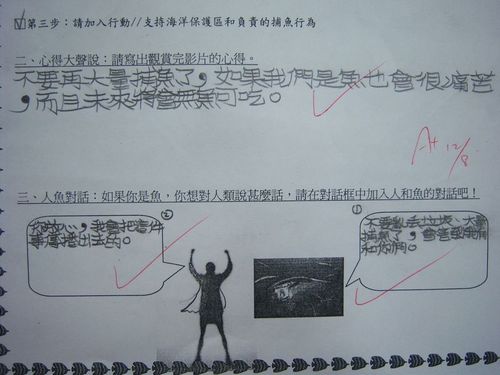 第三步：請加入行動//支持海洋保護區和負責的捕魚行為
二、心得大聲說：請寫出觀賞完影片的心得。
不要再大量捕魚了，如果我們是魚也會很痛苦
，而且未來將會無魚可吃。
A+ 12/8
三、人魚對話：如果你是魚，你想對人類說甚麼話，請在對話框中加入人和魚的對話吧！
②
放心，我會把這件
事傳播出去的。
①
不要亂丟垃圾、大量
捕魚了，會害到我們
和你們。